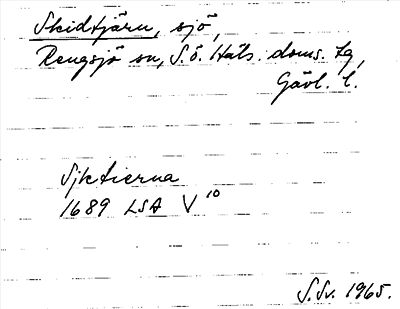 Skidtjärn, sjö,
Rengsjö sn, S.ö. Häls. doms. tg,
Gävl. l.
Sjktierna
1689 LSA V 10
S.Sv. 1965.